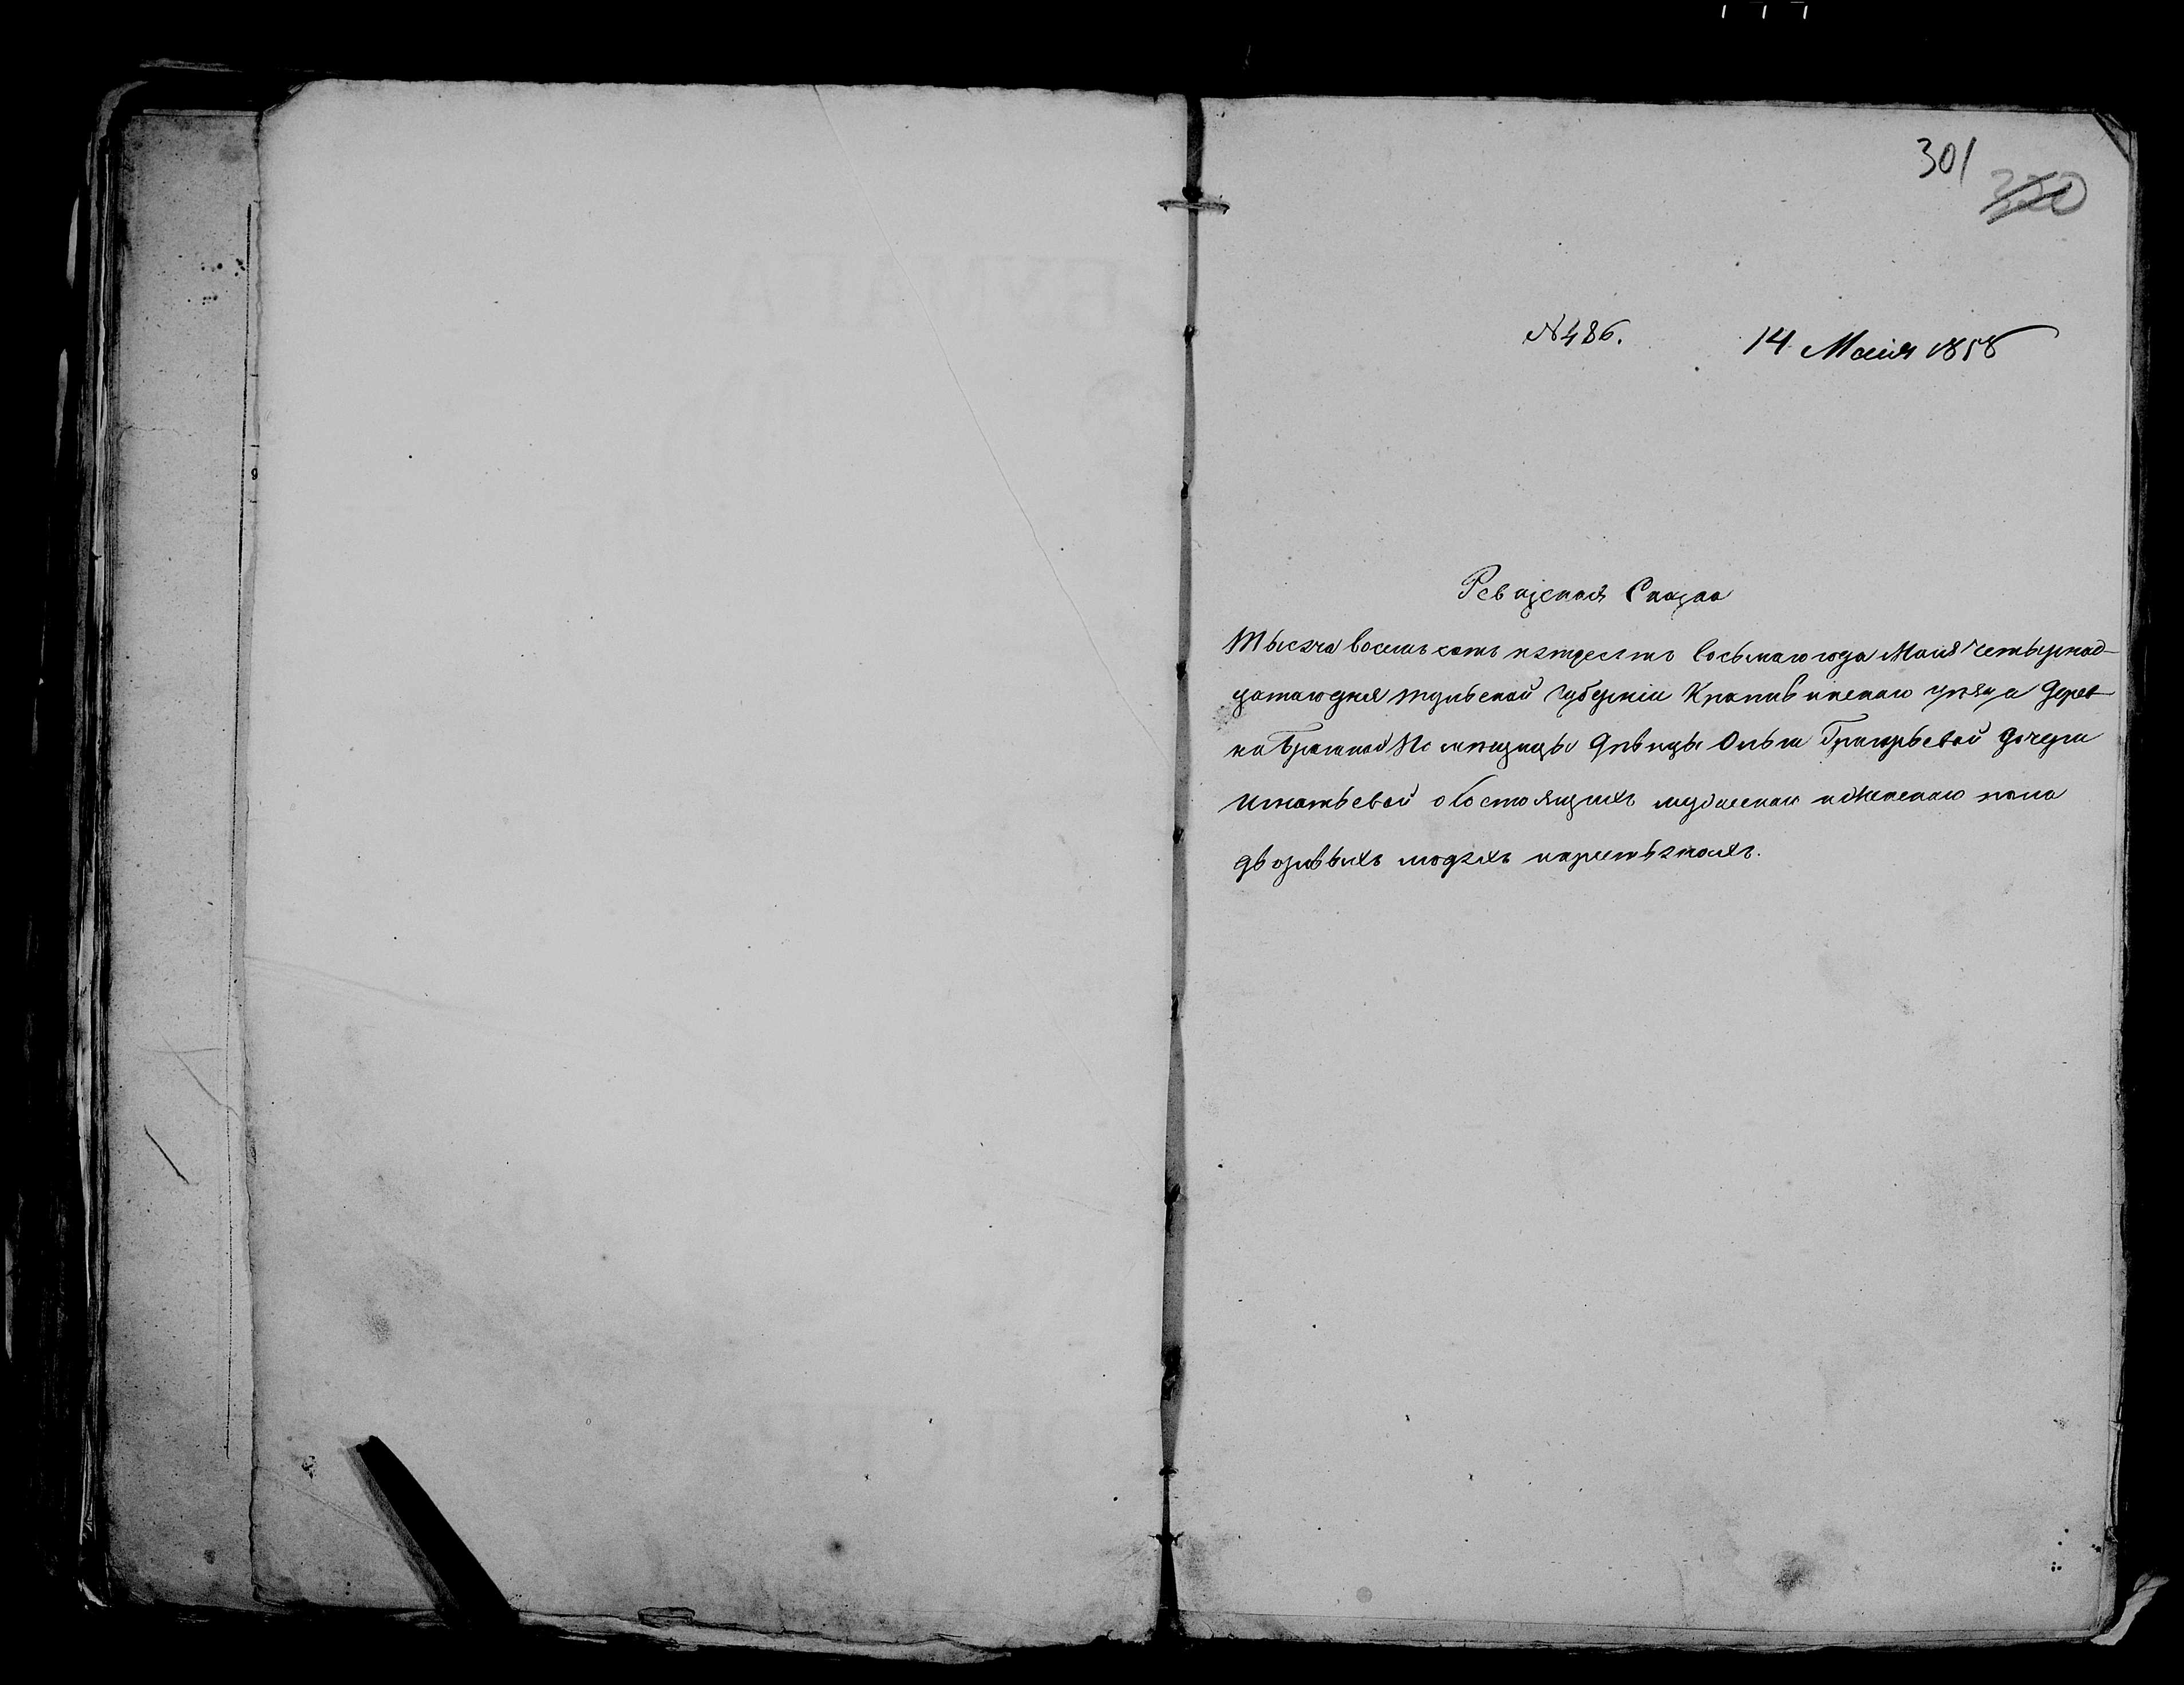 301
350
№ 486. 14 Маія 1858
Ревизская Сказка
Тысяча восемь сотъ пятдесятъ восьмаго года Маія четырнад-
цатаго дня Тульской Губерніи Крапивинскаго уѣзда дерев-
ни Помѣщицы дѣвицы Ольги Григорьевой дочери
Игнатьевой о состоящихъ мужескаго и женскаго пола
дворовыхъ людяхъ и крестьянахъ.